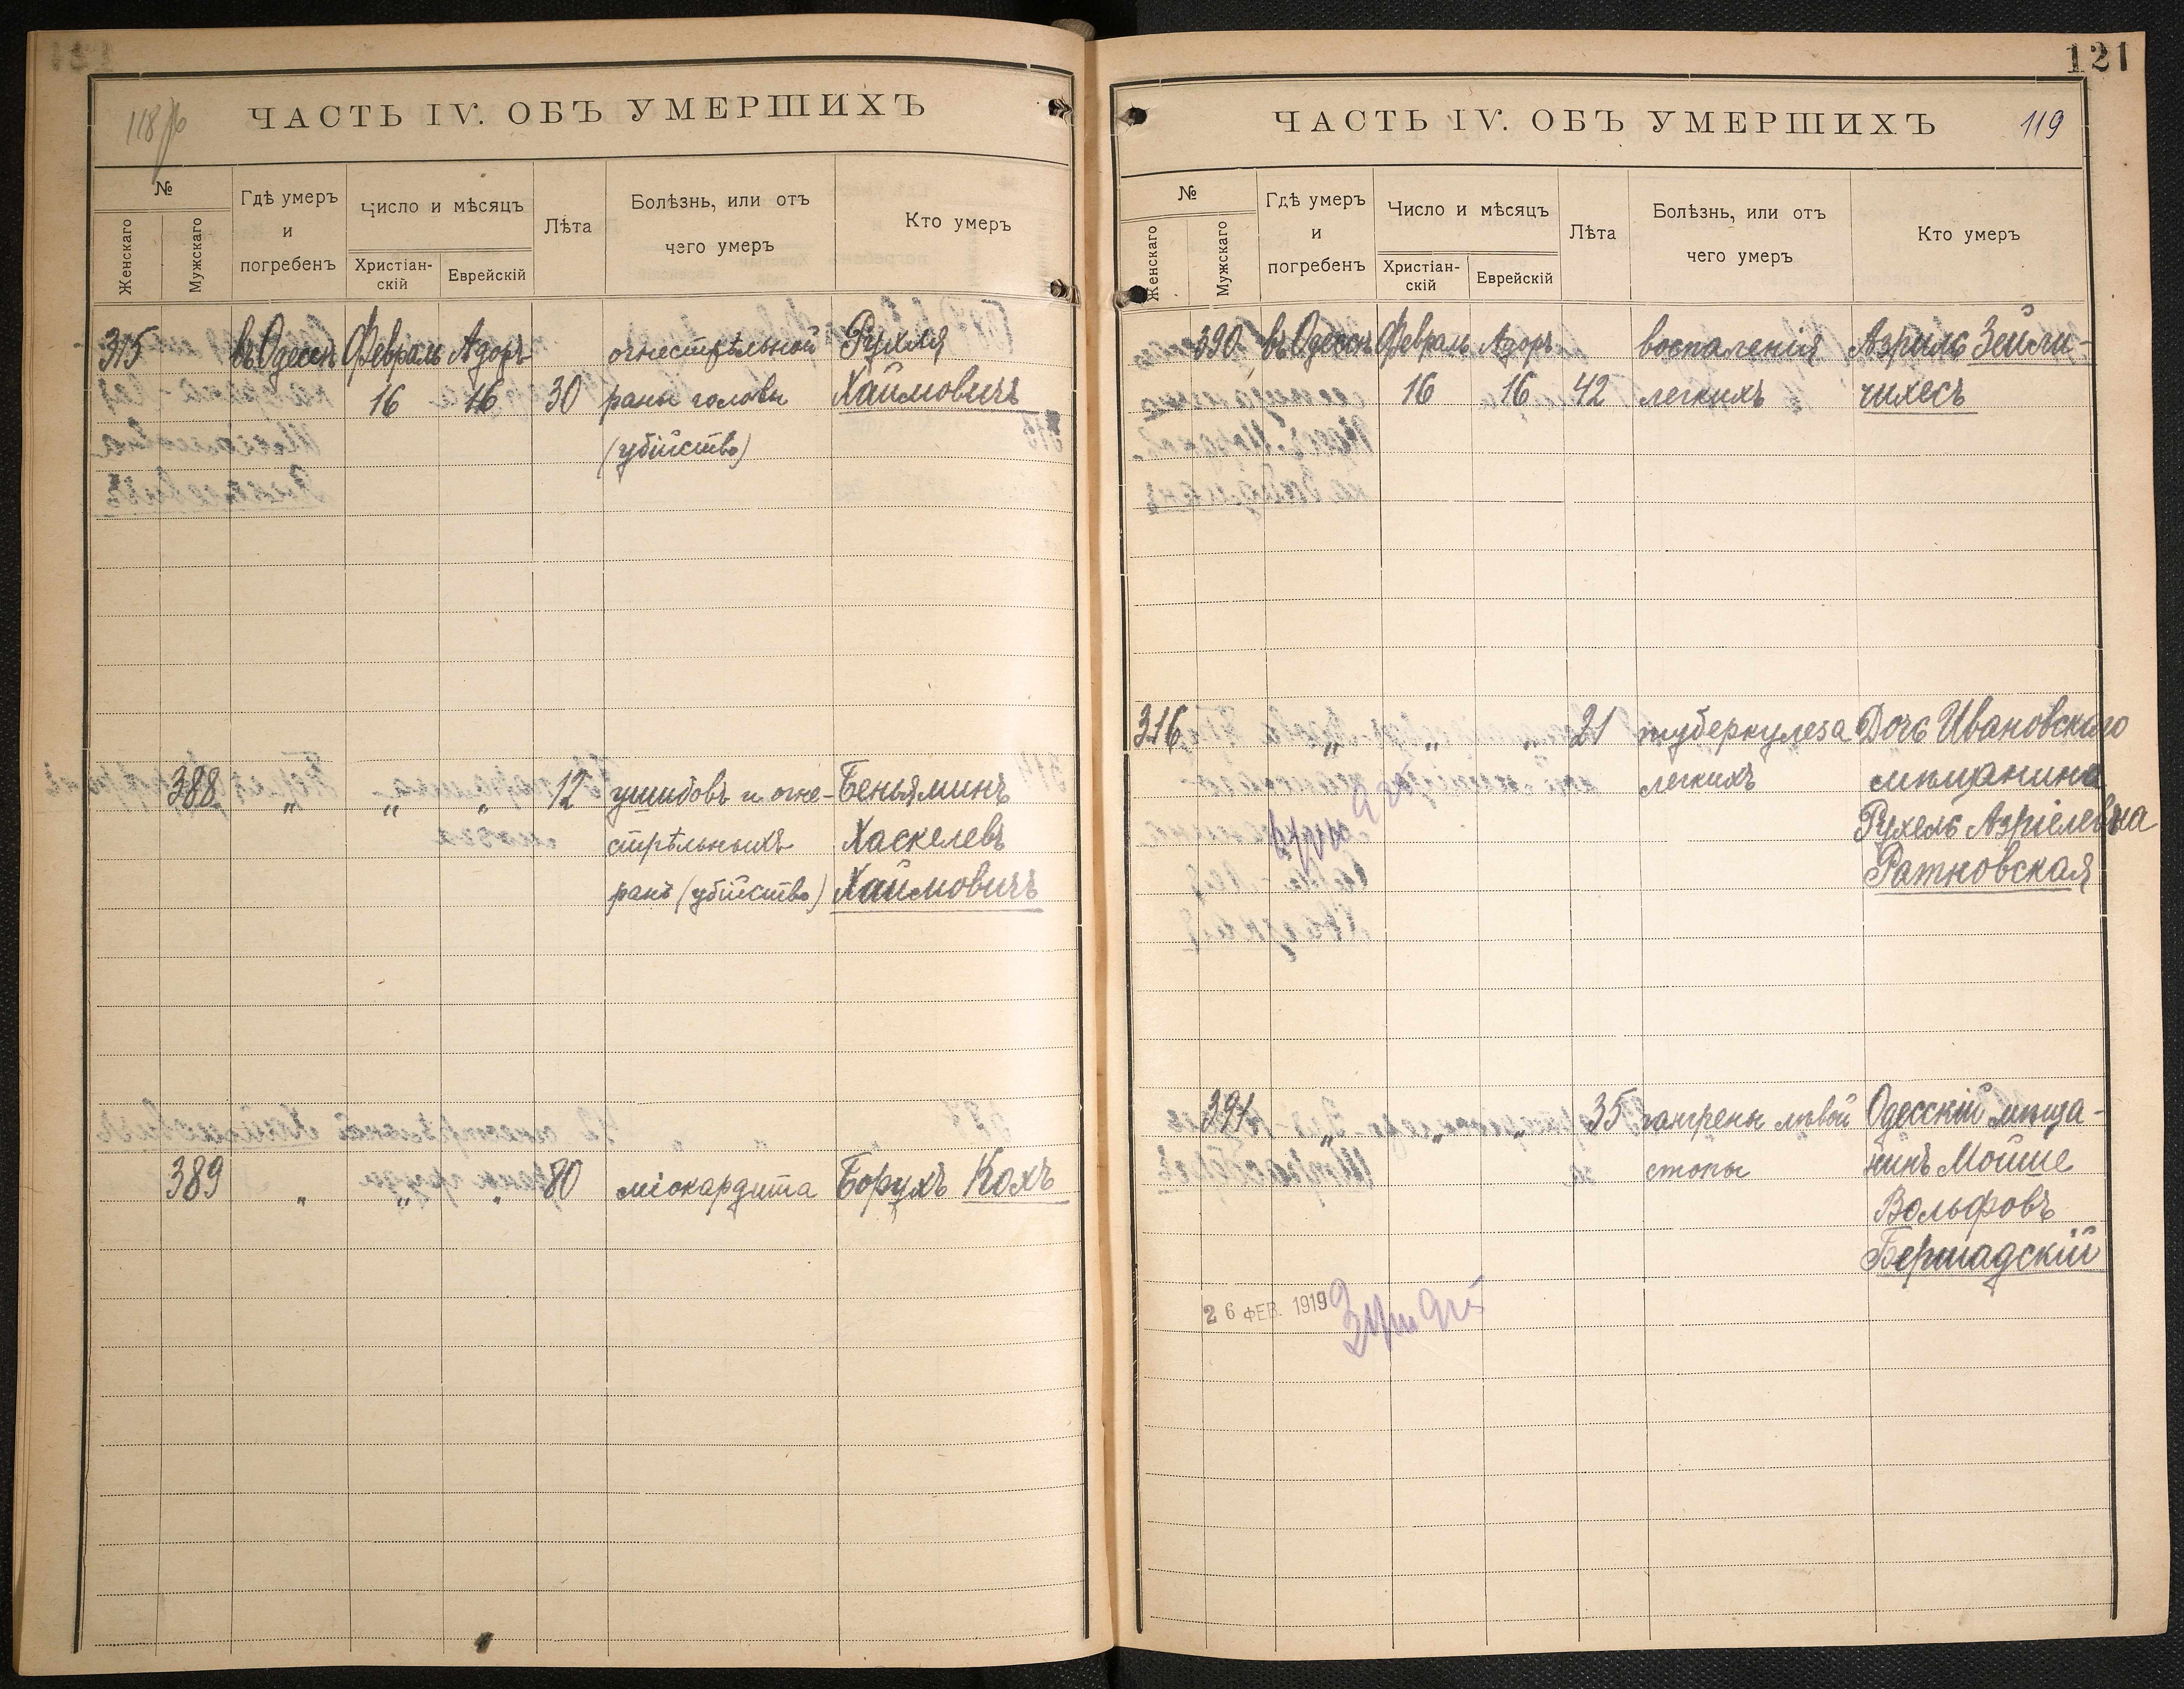 118 об
ЧАСТЬ IV. ОБЪ УМЕРШИХЪ
№
Женскаго
Мужскаго
Гдѣ умеръ
и
погребенъ
Число и мѣсяцъ
Христіан-
скій
Еврейскій
Лѣта
Болѣзнь, или отъ
чего умеръ
Кто умеръ
315 въ Одессѣ Февраль Адоръ огнестрѣльной Рухля
16 16 30 раны головы Хаимовичъ
(убійство)
388 " " " 12 ушибовъ и огне- Беньяминъ
стрѣльныхъ Хаскелевъ
ранъ (убійство) Хаимовичъ
389 " " " 80 міокардита Борухъ Кохъ
121
ЧАСТЬ IV. ОБЪ УМЕРШИХЪ
119
№
Женскаго
Мужскаго
Гдѣ умеръ
и
погребенъ
Число и мѣсяцъ
Христіан-
скій
Еврейскій
Лѣта
Болѣзнь, или отъ
чего умеръ
Кто умеръ
390 въ Одессѣ Февраль Адоръ воспаленія Азриль Зейли-
16 16 42 легкихъ чихесъ
316 " " " 21 туберкулеза Дочь Ивановскаго
легкихъ мѣщанина
Рухель Азріелевна
Ратновская
391 " " " 35 гангрены лѣвой Одесскій мѣща-
стопы нинъ Мойше
Вольфовъ
Бершадскій
26 ФЕВ. 1919